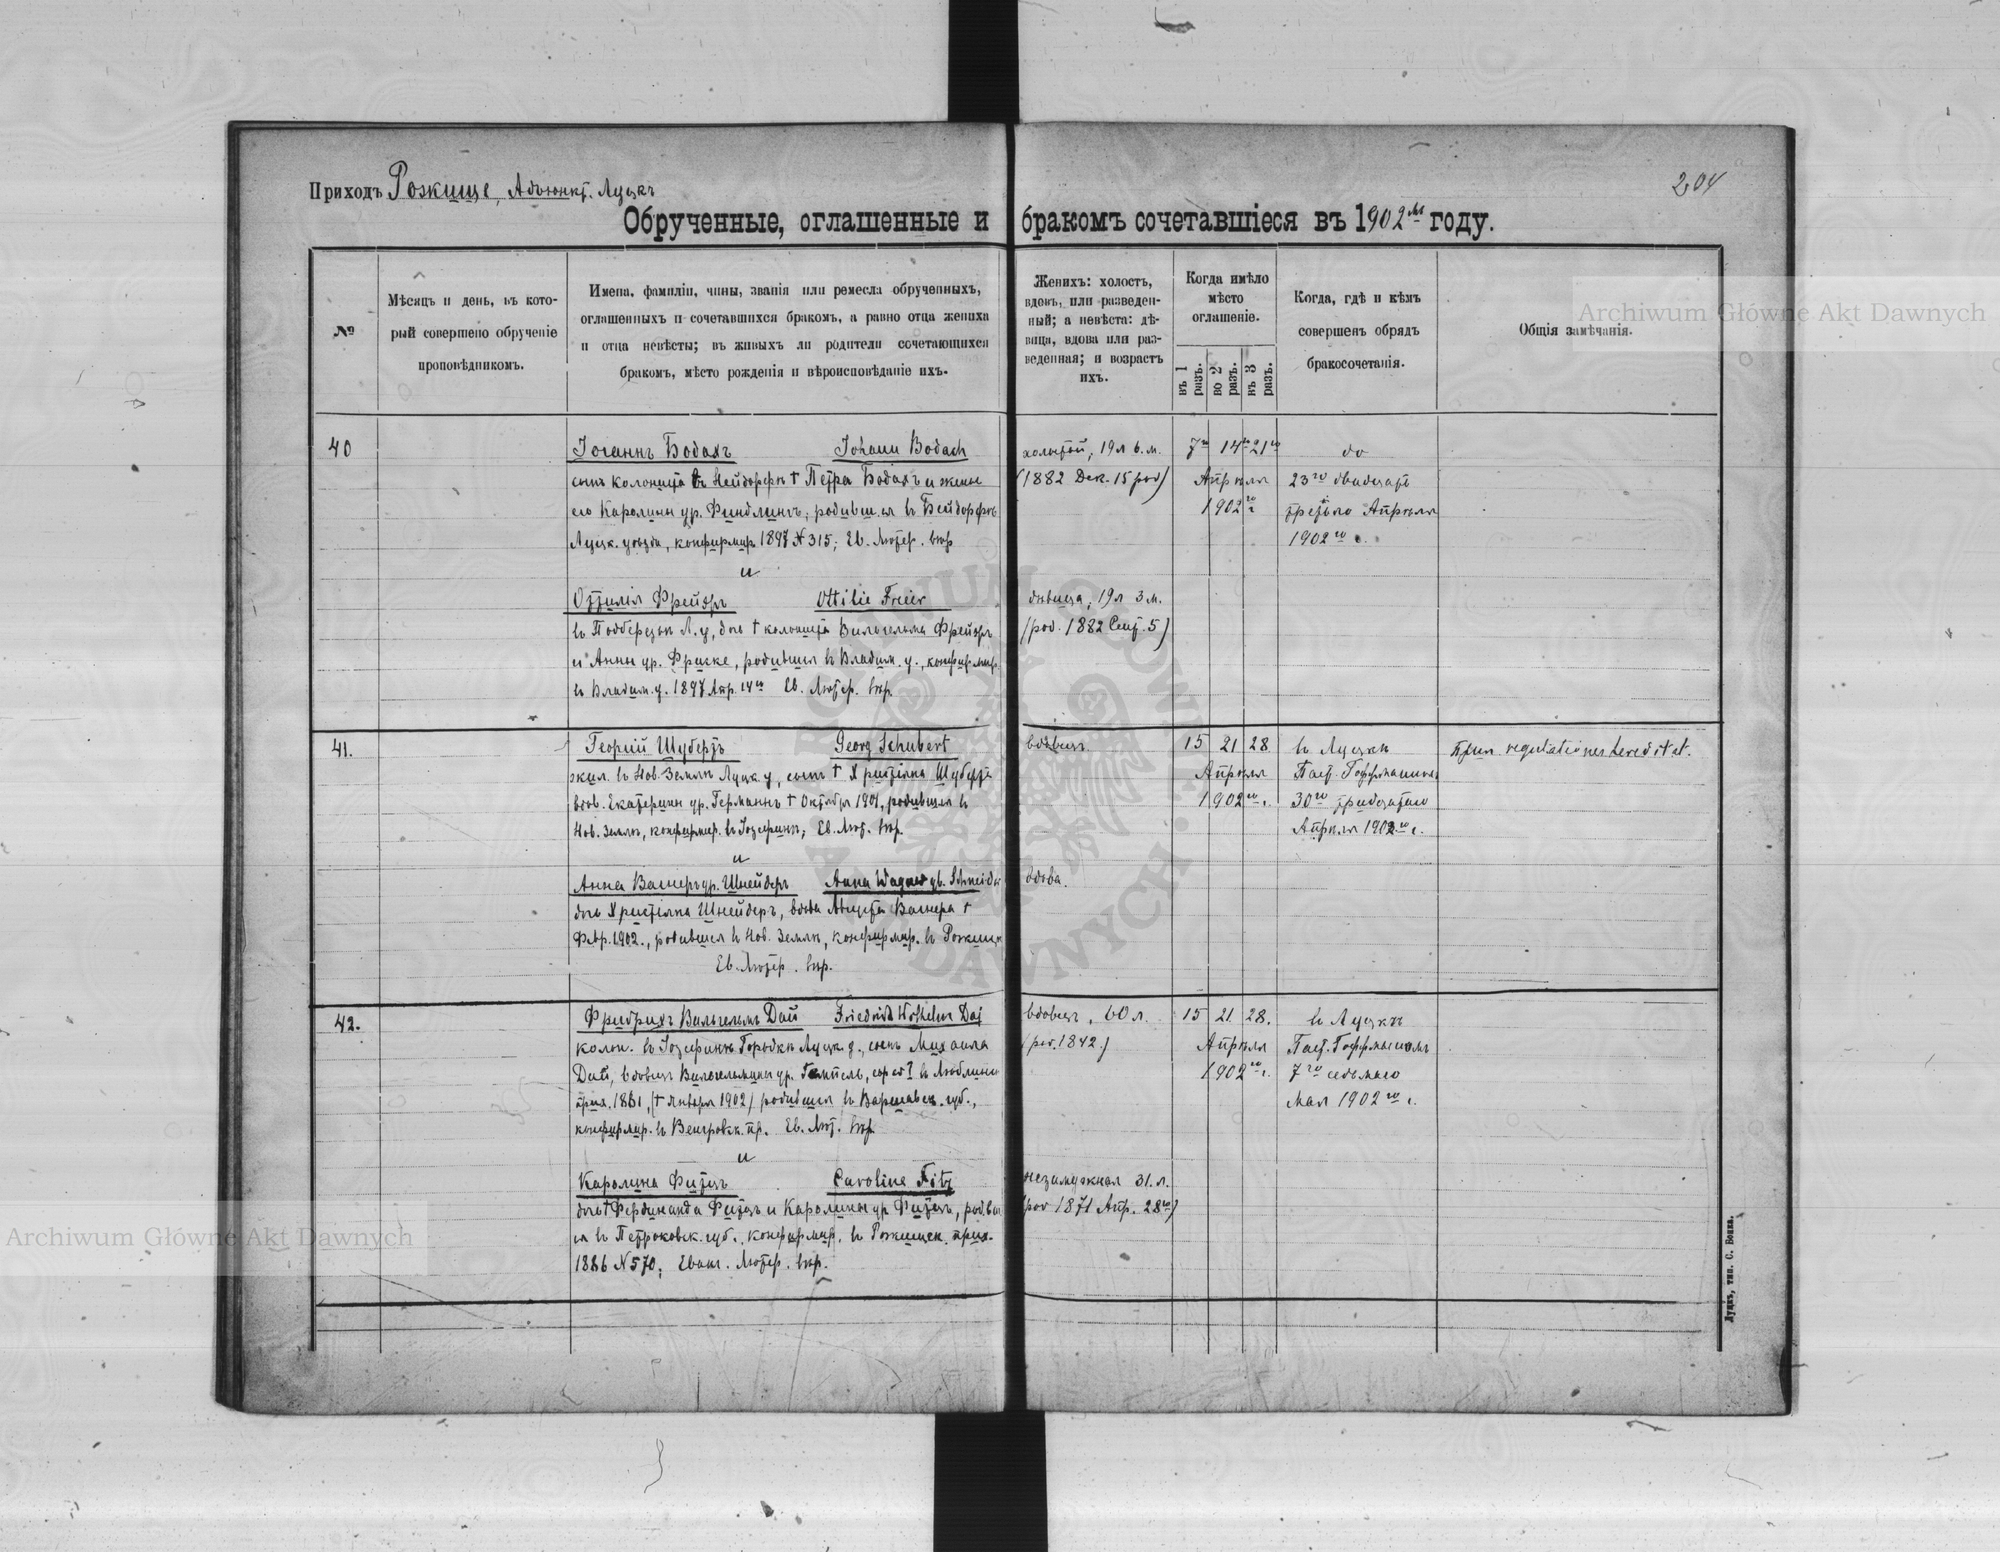 Приходъ Рожище, Адъюнкт. Луцкъ
204
Обрученные, оглашенные и бракомъ сочетавшіеся въ 1902м году.
№
Мѣсяцъ и день, въ кото-
рый совершено обрученіе
проповѣдникомъ.
Имена, фамиліи, чины, званія или ремесла обрученныхъ,
оглашенныхъ и сочетавшихся бракомъ, а равно отца жениха
и отца невѣсты; въ живыхъ ли родители сочетающихся
бракомъ, мѣсто рожденія и вѣроисповѣданіе ихъ.
Женихъ: холостъ,
вдовъ, или разведен-
ный; а невѣста: дѣ-
вица, вдова или раз-
веденная; и возрастъ
ихъ.
Когда имѣло
мѣсто
оглашеніе.
въ 1 разъ.
во 2 разъ.
въ 3 разъ.
Когда, гдѣ и кѣмъ
совершенъ обрядъ
бракосочетанія.
Общія замѣчанія.
40
Іоганнъ Бодахъ Johann Bodach
сынъ колониста въ Нейдорфѣ † Петра Бодахъ и жены
его Каролины ур. Финдлингъ; родивш. ся въ Нейдорфѣ
Луцк. уѣзда, конфирмир. 1897 № 315; Ев. Лютер. вѣр.
и
Оттилія Фрейеръ Ottilie Freier
въ Подберезьи Л. у., дочь † колониста Вильгельма Фрейеръ
и Анны ур. Фриске, родившаяся въ Владим. у., конфирмир.
въ Владим. у. 1897 Апр. 14го Ев. Лютер. вѣр.
холостой, 19 л 6 м.
(1882 Дек. 15 род)
дѣвица, 19 л 3 м.
(род. 1882 Сент. 5)
7го 14го 21го
Апрѣля
1902го г.
до
23го двадцать
третьяго Апрѣля
1902го г.
41.
Георгій Шубертъ Georg Schubert
жил. въ Нов. Землѣ Луцк. у., сынъ † Христіана Шуберта
вдов. Екатерины ур. Германнъ † Октября 1901, родившійся въ
Нов. Землѣ, конфирмир. въ Іозефинѣ, Ев. Лют. вѣр.
и
Анна Вагнеръ ур. Шнейдеръ Anna Wagner gb. Schneider
дочь Христіана Шнейдеръ, вдова Августа Вагнера †
Февр. 1902., родившаяся въ Нов. Землѣ, конфирмир. въ Рожищѣ
Ев. Лютер. вѣр.
вдовецъ.
вдова.
15 21 28
Апрѣля
1902го г.
въ Луцкѣ
Паст. Гоффманномъ
30го тридцатаго
Апрѣля 1902го г.
42.
Фридрихъ Вильгельмъ Дай Friedrich Wilhelm Daj
колон. въ Іозефинѣ Городки Луцк. у., сынъ Михаила
Дай, вдовецъ Вильгельмины ур.
1861, († Января 1902) родившійся въ Варшавск. губ.,
конфирмир. въ Венгровск. пр. Ев. Лют. вѣр.
и
Каролина Фитцъ Caroline Fitz
дочь † Фердинанда Фитцъ и Каролины ур. Фитцъ, родив
ся въ Петроковск. губ., конфирмир. въ Рожищен. прих.
1886 № 570; Еванг. Лютер. вѣр.
вдовецъ, 60 л.
(род. 1842.)
незамужная 31. л.
(род 1871 Апр. 28го)
15 21 28.
Апрѣля
1902го г.
въ Луцкѣ
Паст. Гоффманномъ
7го седьмого
Мая 1902го г.
Луцкъ, тип. С. Бонка.
Archiwum Główne Akt Dawnych
Archiwum Główne Akt Dawnych
ARCHIWUM GŁÓWNE AKT DAWNYCH